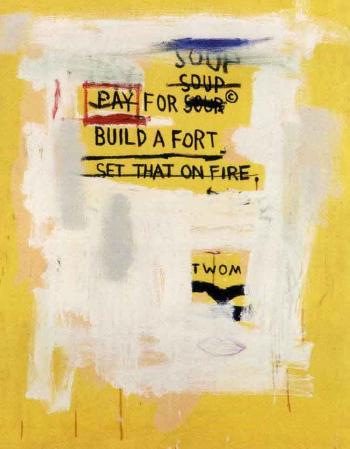 SOUP
SOUP
PAY FOR SOUP©
BUILD A FORT.
SET THAT ON FIRE.
TWOM